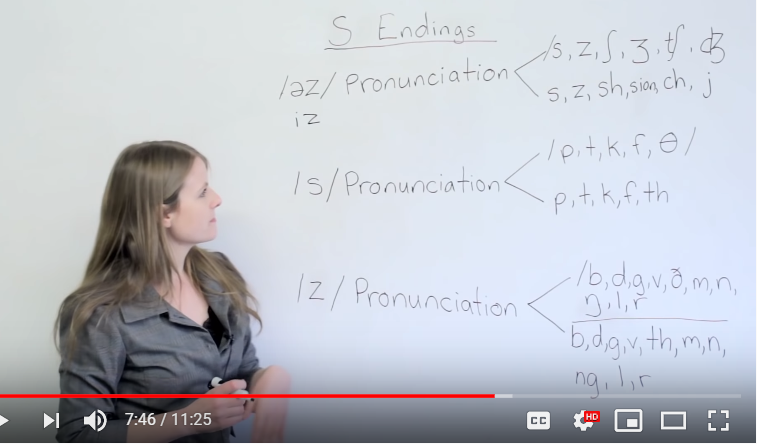 S Endings
/əz/ Pronunciation
iz
/s, z, ʃ, ʒ, tʃ, dʒ
s, z, sh, sion, ch, j
/s/ Pronunciation
/p, t, k, f, θ/
p, t, k, f, th
/z/ Pronunciation
/b, d, g, v, ð, m, n,
ŋ, l, r
b, d, g, v, th, m, n,
ng, l, r
7:46 / 11:25
CC
HD